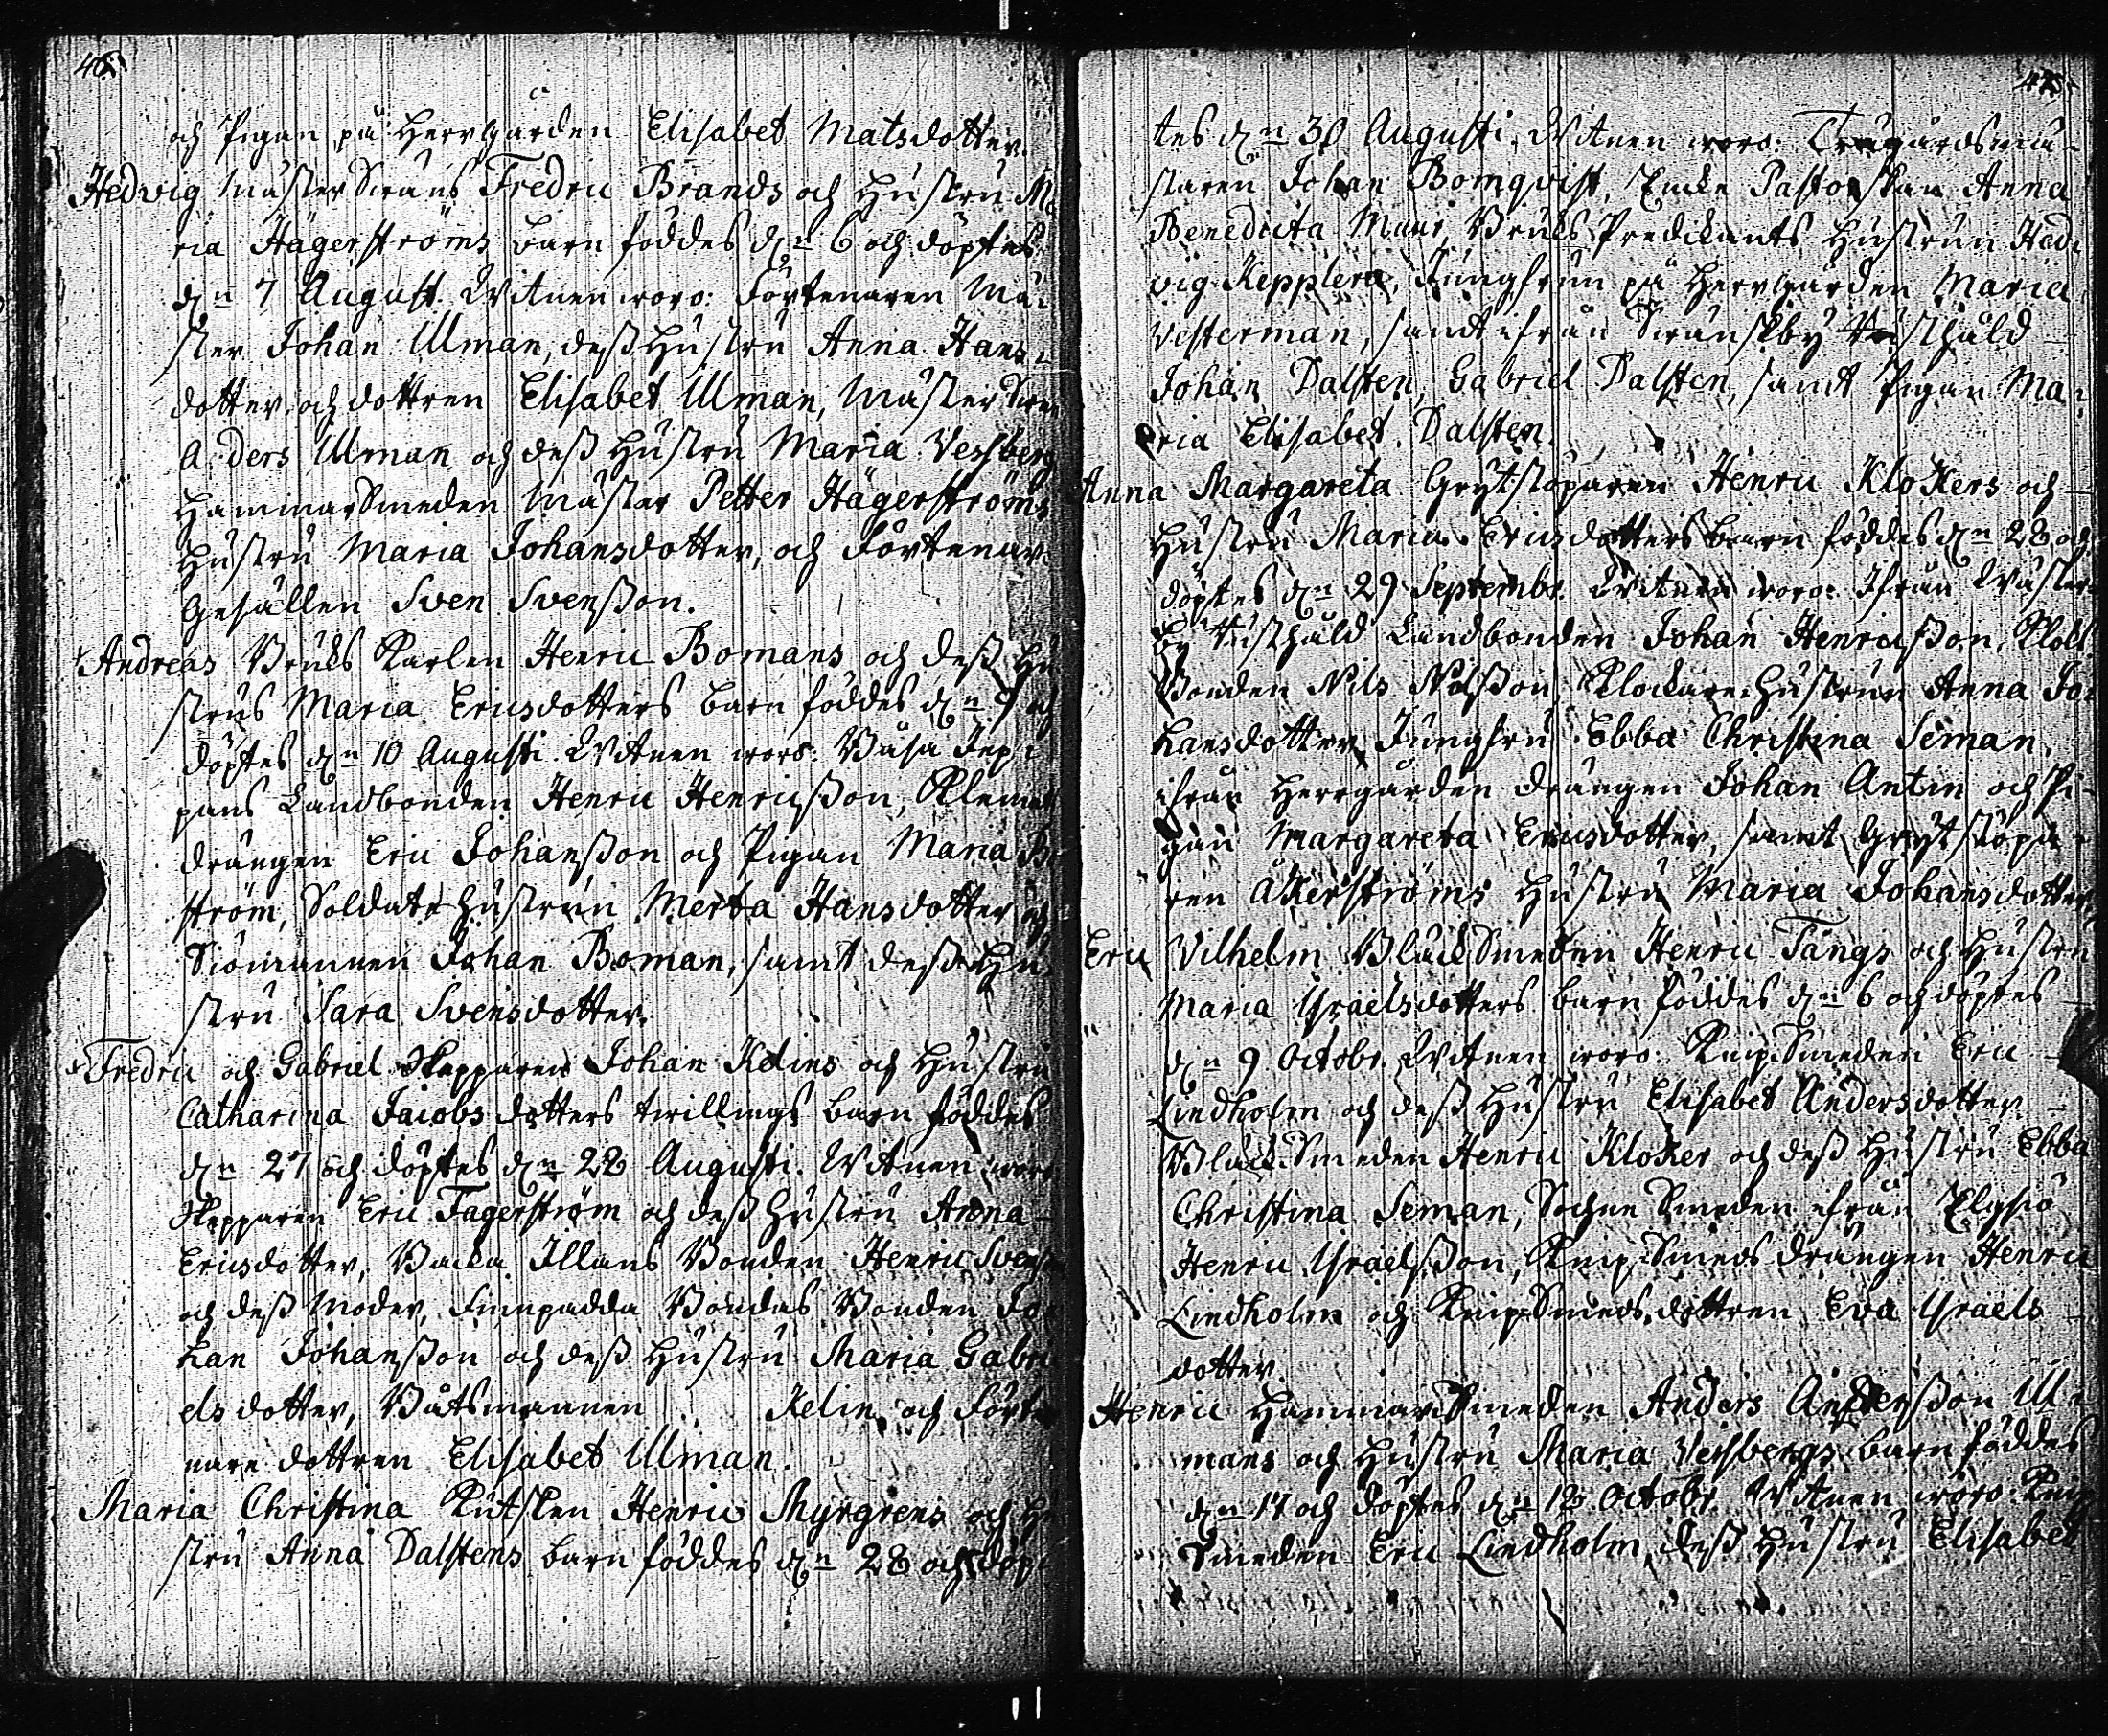 46.
och Pigan på Herregården Elisabet Matsdotter.
Hedvig Mäster Svens Fredric Brands och Hustru Ma
ria Hägerströms barn föddes d:n 6 och döptes
d:n 7 August. Witnen woro: Förtenaren Mä-
ster Johan Ulman, dess Hustru Anna Hans-
dotter, och dottren Elisabet Ulman, Mäster Sven
Anders Ulman och dess Hustru Maria Vesberg
HammarSmeden Mäster Petter Hägerströms
Hustru Maria Johansdotter, och Förtenar
Gesällen Sven Svensson.
Andreas Bruks Karlen Henric Bomans och dess Hu
strus Maria Ericsdotters barn föddes d:n 9 och
döptes d:n 10 Augusti. Witnen woro: Wåsa Jep-
pans Landbonden Henric Henricsson,
drängen Eric Johansson och Pigan Maria
ström, Soldats Hustrun Merta Hansdotter och
Siömannen Johan Boman, samt dess Hu
stru Sara Svensdotter.
Fredric och Gabriel Skepparen Johan Kelins och Hustru
Catharina Jacobs dotters twillings barn föddes
d:n 27 och döptes d:n 28 Augusti. Witnen woro
Skepparen Eric Fagerström och dess Hustru Anna
Ericsdotter, Backa Illans Bonden Henric Svens
och dess Moder, Finnpadda Bondas Bonden Jo
han Johansson och dess Hustru Maria Gabri
els dotter, Båtsmannen Kelin, och Förte
nare dottren Elisabet Ulman.
Maria Christina Kutsken Henric Myrgrens och Hu
stru Anna Dalstens barn föddes d:n 28 och döp-
47.
tes d:n 30 Augusti. Witnen woro: Trägårdsmä-
staren Johan Bomqvist, Enke Pastorskan Anna
Benedicta Muur, Bruks Predikants Hustrun Hed-
vig Kepplera, Jungfrun på Herregården Maria
Vesterman, samt ifrån Svenskby Rusthåld
Johan Dalsten, Gabriel Dalsten, samt Pigan Ma-
ria Elisabet Dalsten.
Anna Margareta Grytstöparen Henric Klokers och
Hustru Maria Ericsdotters barn föddes d:n 28 och
döptes d:n 29 Septembr. Witnen woro: Ifrån Wäster-
by Rusthåld Landbonden Johan Henricsson, Klobb
Bonden Nils Nilsson, Klockare Hustrun Anna Jo-
hansdotter, Jungfru Ebba Christina Seman,
ifrån Herregården drängen Johan Antin och Pi-
gan Margareta Ericsdotter, samt Grytstöpa-
ren Åkerströms Hustru Maria Johansdotter,
Eric Vilhelm BlåckSmeden Henric Tångs och Hustru
Maria Israelsdotters barn föddes d:n 6 och döptes
d:n 9 Octobr. Witnen woro: KnipSmeden Eric
Lindholm och dess Hustru Elisabet Andersdotter.
BlåckSmeden Henric Kloker och dess Hustru Ebba
Christina Seman, Sochne Smeden ifrån Elgsiö
Henric Israelsson, KnipSmeds drängen Henric
Lindholm och KnipSmeds dottren Eva Israels
dotter.
Henric HammarSmeden Anders Andersson Ul-
mans och Hustru Maria Vesbergs barn föddes
d:n 17 och döptes d:n 18 Octobr. Witnen woro: Knip
Smeden Eric Lindholm, dess Hustru Elisabet